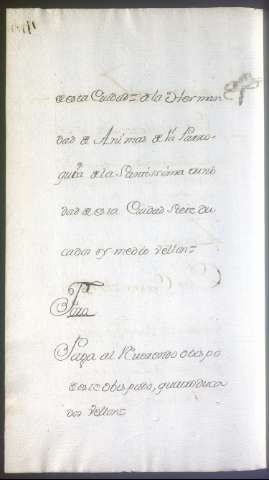 de esta Ciudad = de la Herman
dad de Animas de la Parro-
quia de la Santissima trini
dad de esta Ciudad siete du
cados y medio vellon =
Paga al Reverendo obispo
de este obispado, quatro duca
dos vellon =